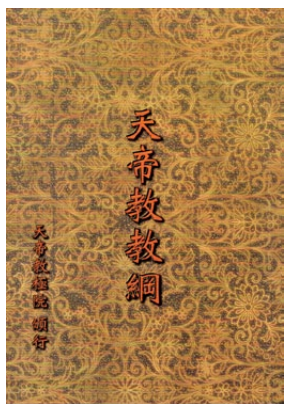 天帝教教綱
天帝教極院 頒行